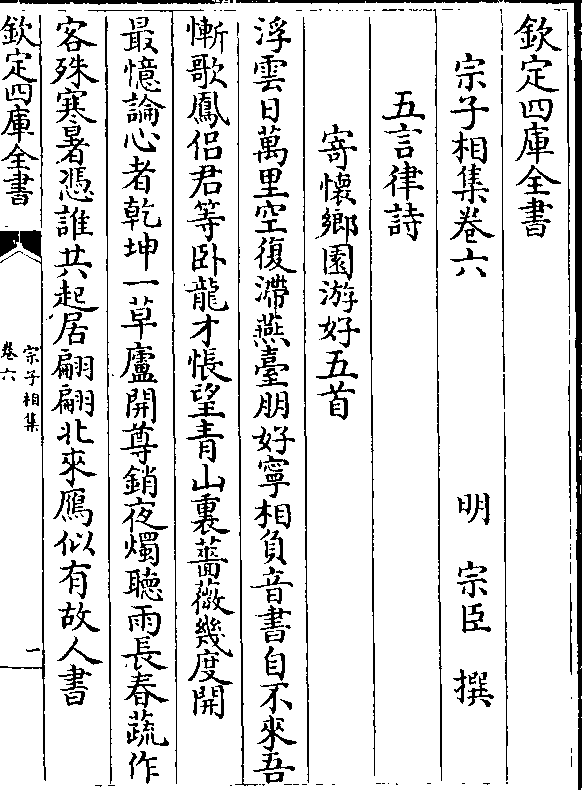 欽定四庫全書
宗子相集卷六　明　宗臣　撰
五言律詩
寄懷鄉園游好五首
浮雲日萬里空復滯燕臺朋好寧相負音書自不來吾
慚歌鳳侶君等卧龍才悵望青山裏薔薇幾度開
最憶論心者乾坤一草廬開尊銷夜燭聽雨長春蔬作
客殊寒暑憑誰共起居翩翩北來鴈似有故人書
欽定四庫全書
宗子相集
卷六
一